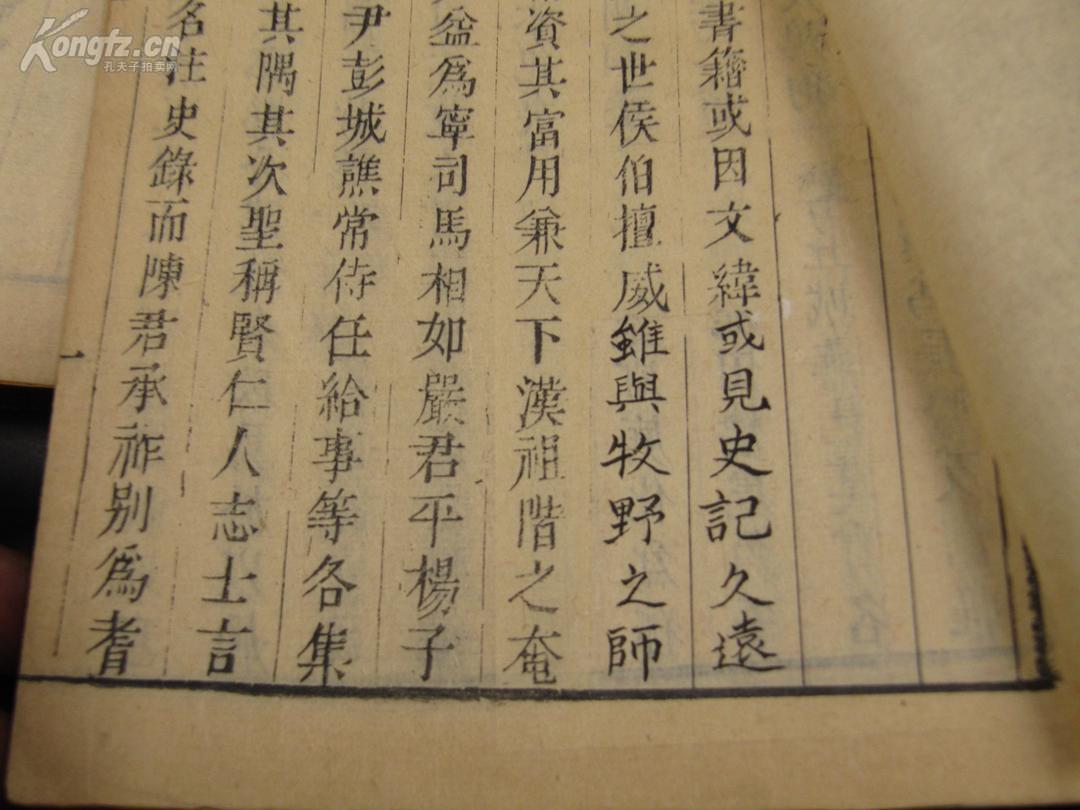 Kongfz.cn
孔夫子拍卖网
書籍或因文緯或見史記久遠
之世侯伯擅威雖與牧野之師
資其富用兼天下漢祖階之奄
益爲寜司馬相如嚴君平楊子
尹彭城譙常侍任給事等各集
其隅其次聖稱賢仁人志士言
名注史錄而陳君承祚别爲耆
一